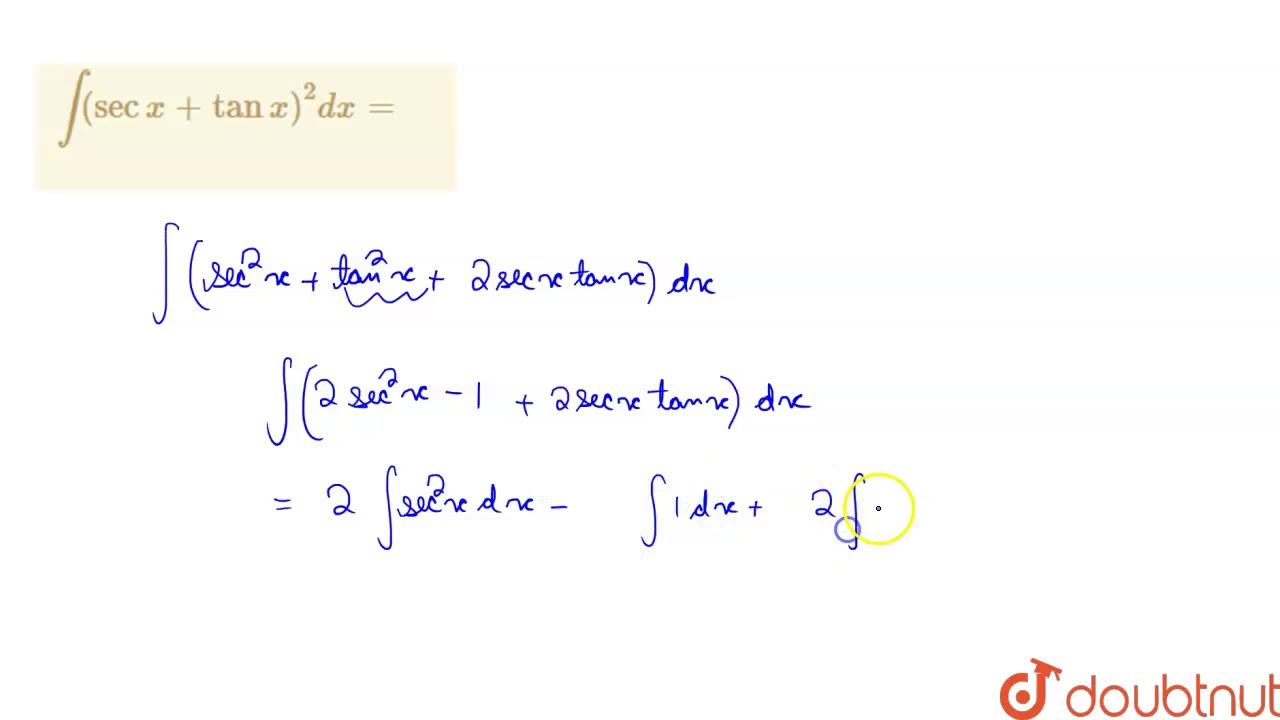 ∫(sec x + tan x)²dx =
∫(sec²x + tan²x + 2secx tanx) dx
∫(2 sec²x - 1 + 2secx tanx) dx
= 2 ∫sec²x dx - ∫1 dx + 2∫
doubtnut